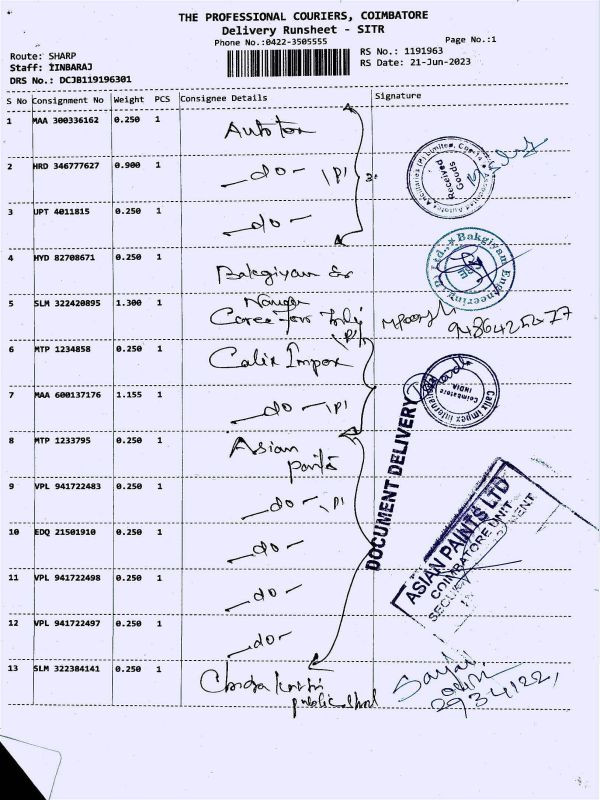 THE PROFESSIONAL COURIERS, COIMBATORE
Delivery Runsheet - SITR
Phone No.:0422-3505555
Page No.:1
Route: SHARP
RS No.: 1191963
Staff: TINBARAJ
RS Date: 21-Jun-2023
DRS No.: DCJB119196301
S No Consignment No Weight PCS Consignee Details Signature
1 MAA 300336162 0.250 1
2 HRD 346777627 0.900 1 -do-
3 UPT 4011815 0.250 1 -do-
4 HYD 82708671 0.250 1 Bakgiyam
5 SLM 322420895 1.300 1
6 MTP 1234858 0.250 1 Calix Impex
7 MAA 600137176 1.155 1 -do-
8 MTP 1233795 0.250 1 Asian Paints
9 VPL 941722483 0.250 1 -do-
10 EDQ 21501910 0.250 1 -do-
11 VPL 941722498 0.250 1 -do-
12 VPL 941722497 0.250 1 -do-
13 SLM 322384141 0.250 1
Received
Goods
Bakgiyam Engineering
Calix Impex International
Coimbatore
INDIA
DOCUMENT DELIVERY
ASIAN PAINTS LTD
COIMBATORE UNIT